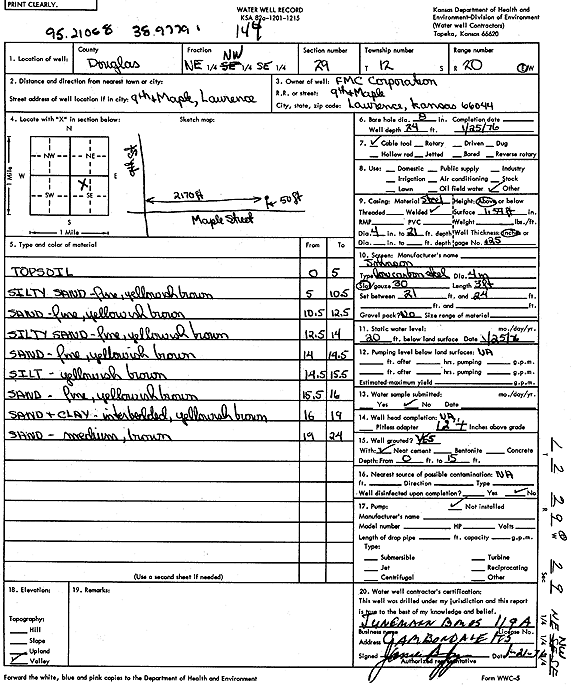 PRINT CLEARLY.
WATER WELL RECORD
KSA 82a-1201-1215
Kansas Department of Health and
Environment-Division of Environment
(Water well Contractors)
Topeka, Kansas 66620
95.21068 38.9779
144
1. Location of well:
County
Douglas
Fraction
NW
NE 1/4 SE 1/4 SE 1/4
Section number
29
Township number
T 12 S
Range number
R 20 E/W
2. Distance and direction from nearest town or city:
Street address of well location if in city: 9th & Maple, Lawrence
3. Owner of well: FMC Corporation
R.R. or street: 9th & Maple
City, state, zip code: Lawrence, Kansas 66044
4. Locate with "X" in section below:
Sketch map:
N
NW NE
W E
X
SW SE
S
1 Mile
1 Mile
9th St
2170 ft
50 ft
Maple Street
6. Bore hole dia. 8 in. Completion date
Well depth 24 ft. 1/25/76
7. ✓ Cable tool Rotary Driven Dug
Hollow rod Jetted Bored Reverse rotary
8. Use: Domestic Public supply Industry
Irrigation Air conditioning Stock
Lawn Oil field water ✓ Other
9. Casing: Material Steel Height: Above or below
Threaded Welded ✓ Surface in.
RMP PVC Weight lbs./ft.
Dia. 4 in. to 21 ft. depth Wall Thickness: inches or
Dia. in. to ft. depth gage No. .125
10. Screen: Manufacturer's name
Johnson
Type low carbon steel Dia. 4 in
Slot/gauze 30 Length 3 ft
Set between 21 ft. and 24 ft.
ft. and ft.
Gravel pack? No Size range of material
5. Type and color of material From To
TOPSOIL 0 5
SILTY SAND - fine, yellowish brown 5 10.5
SAND - fine, yellowish brown 10.5 12.5
SILTY SAND - fine, yellowish brown 12.5 14
SAND - fine, yellowish brown 14 14.5
SILT - yellowish brown 14.5 15.5
SAND - fine, yellowish brown 15.5 16
SAND + CLAY - interbedded, yellowish brown 16 19
SAND - medium, brown 19 24
(Use a second sheet if needed)
11. Static water level: mo./day/yr.
20 ft. below land surface Date 1/25/76
12. Pumping level below land surfaces: NA
ft. after hrs. pumping g.p.m.
ft. after hrs. pumping g.p.m.
Estimated maximum yield g.p.m.
13. Water sample submitted: mo./day/yr.
Yes ✓ No Date
14. Well head completion: NA
Pitless adapter 124 Inches above grade
15. Well grouted? YES
With: ✓ Neat cement Bentonite Concrete
Depth: From 0 ft. to 15 ft.
16. Nearest source of possible contamination: NA
ft. Direction Type
Well disinfected upon completion? Yes ✓ No
17. Pump: ✓ Not installed
Manufacturer's name
Model number HP Volts
Length of drop pipe ft. capacity g.p.m.
Type:
Submersible Turbine
Jet Reciprocating
Centrifugal Other
18. Elevation:
Topography:
Hill
Slope
Upland
✓ Valley
19. Remarks:
20. Water well contractor's certification:
This well was drilled under my jurisdiction and this report
is true to the best of my knowledge and belief.
119A
Business name License No.
Address
Signed Date 1-21-76
Authorized representative
T R W Sec 1/4 1/4 1/4
Forward the white, blue and pink copies to the Department of Health and Environment
Form WWC-5